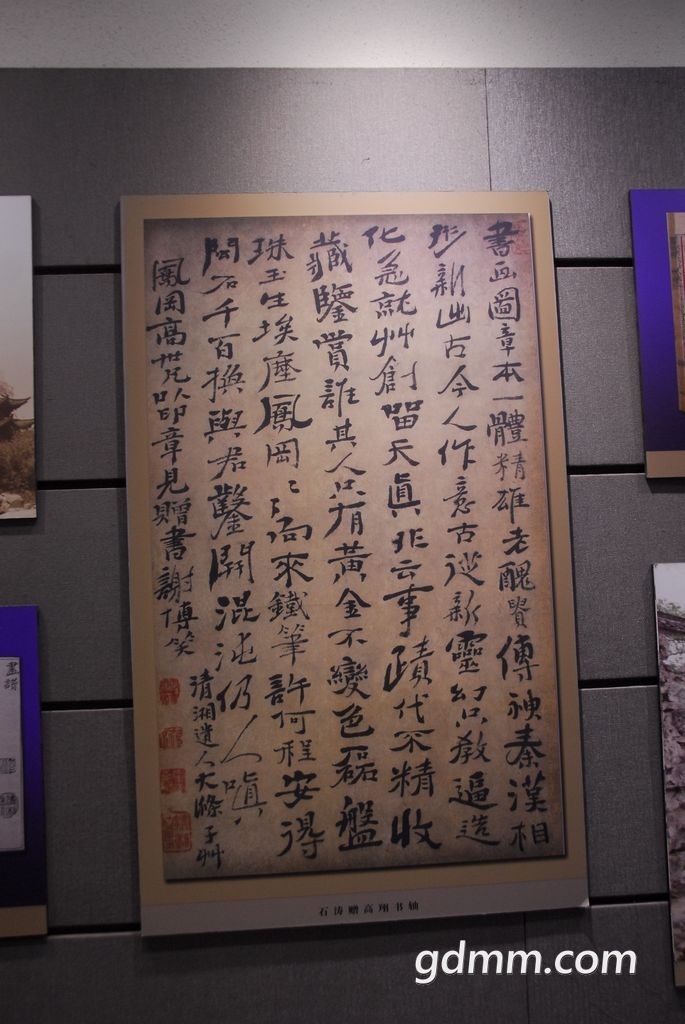 書画圖章本一體精雄老醜貴傳神秦漢相
形新出古今人作意古從新靈幻只教逼造
化急就艸創留天真非云事蹟代不精收
藏鑒賞誰其人只有黃金不變色磊盤
珠玉生埃塵鳳岡鳳岡向來鐵筆許何程安得
閒石千百换與君鑿開混沌仍人嗔
鳳岡高世兄以印章見贈書謝博笑
清湘遺人大滌子艸
石涛赠高翔书轴
畫譜
gdmm.com